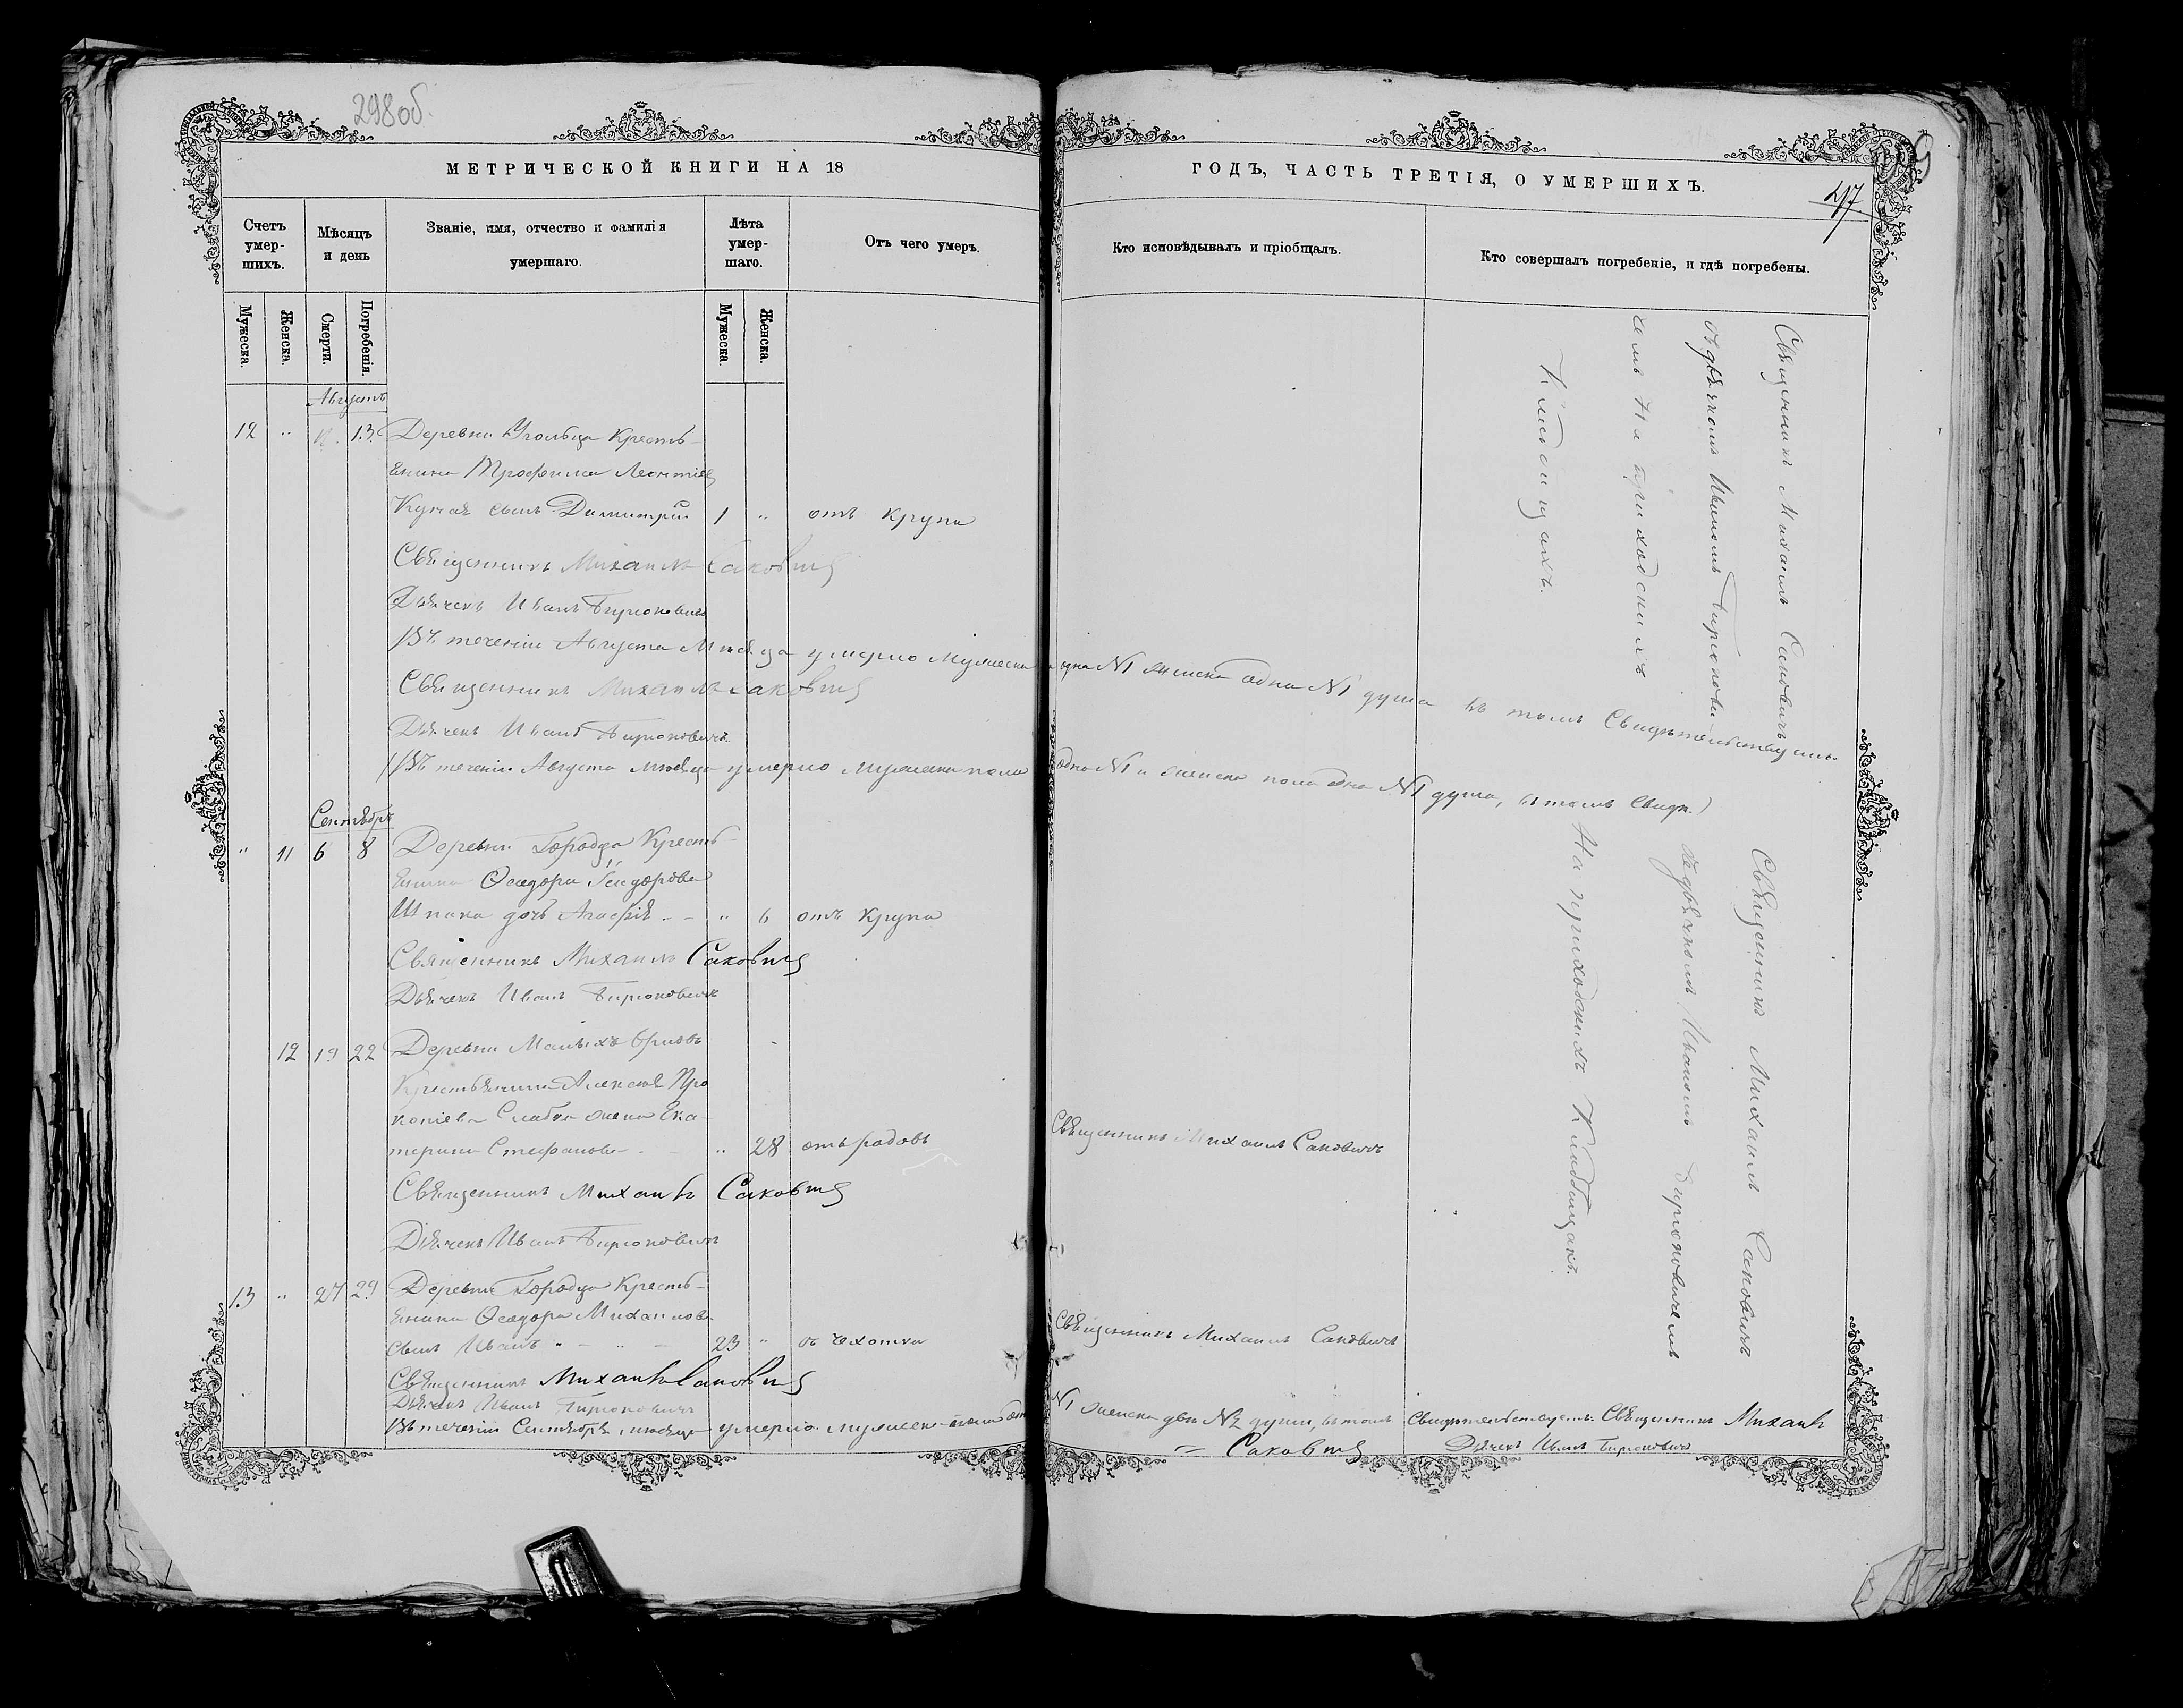 298об.
МЕТРИЧЕСКОЙ КНИГИ НА 18
ГОДЪ, ЧАСТЬ ТРЕТІЯ, О УМЕРШИХЪ.
Счетъ умер-шихъ.
Мѣсяцъ и день
Званіе, имя, отчество и фамилія умершаго.
Лѣта умер-шаго.
Отъ чего умеръ.
Кто исповѣдывалъ и пріобщалъ.
Кто совершалъ погребеніе, и гдѣ погребены.
Мужеска.
Женска.
Смерти.
Погребенія.
Мужеска
Женска.
Августъ
12 " 13 Деревни Угольца Кресть-
янина Трофима Леонтіев
сынъ Димитрій 1 " отъ крупа
Священникъ Михаилъ Саковичъ
Дьячекъ Иванъ Бирюковичъ
Въ теченіи Августа Мѣсяца умерло Мужеска одна №1 женска одна №1 душа въ томъ Свидѣтельствуемъ
Священникъ Михаилъ Саковичъ
Дьячекъ Иванъ Бирюковичъ
(Въ теченіи Августа мѣсяца умерло мужеска пола одна №1 и женска пола одна №1 душа, въ томъ Свидѣ.)
Священникъ Михаилъ Саковичъ
съ дьячкомъ Иваномъ Бирюкови
чемъ На приходскихъ
Кладбищахъ.
Сентябрь
" 11 6 8 Деревни Городца Кресть-
янина Ѳеодора
Шпака дочь Агафія - - " 6 отъ крупа
Священникъ Михаилъ Саковичъ
Дьячекъ Иванъ Бирюковичъ
12 19 22 Деревни Малыхъ
Крестьянина Алексѣя Про
копіева Слабка жена Ека-
терина Стефанова - - " 28 отъ родовъ
Священникъ Михаилъ Саковичъ
Священникъ Михаилъ Саковичъ
Дьячекъ Иванъ Бирюковичъ
13 " 27 29 Деревни Городца Кресть-
янина Ѳеодора Михаилова
сынъ Иванъ " - " - 23 " отъ чахотки
Священникъ Михаилъ Саковичъ
Священникъ Михаилъ Саковичъ
Дьячекъ Иванъ Бирюковичъ
Въ теченіи Сентября мѣсяца умерло мужеска пола одна №1 женска двѣ №2 души, въ томъ Свидѣтельствуемъ: Священникъ Михаилъ
Саковичъ
Дьячекъ Иванъ Бирюковичъ
Священникъ Михаилъ Саковичъ
съ дьячкомъ Иваномъ Бирюковичемъ
На приходскихъ Кладбищахъ.